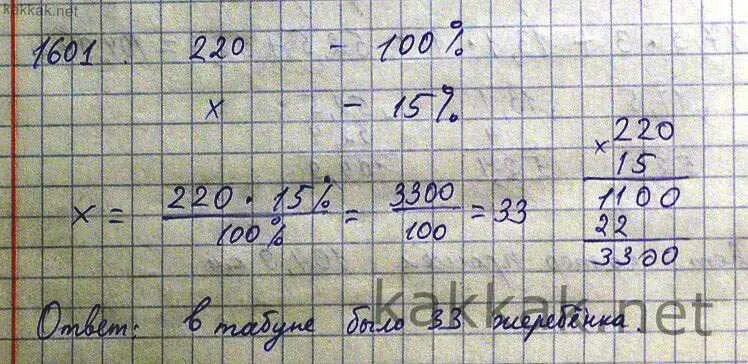 kakkak.net
1601. 220 - 100%
x - 15%
x = 220 · 15% / 100% = 3300 / 100 = 33
× 220
15
1100
22
3300
Ответ: в табуне было 33 жеребёнка.
kakkak.net